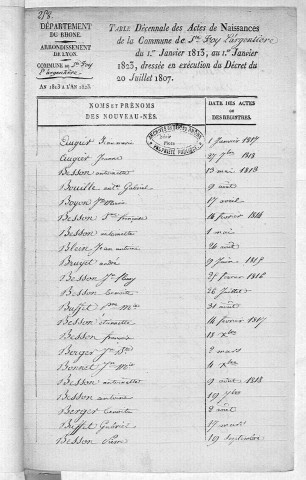 218.
DÉPARTEMENT
DU RHONE.
ARRONDISSEMENT
DE LYON.
COMMUNE de Ste Foy
l'argentière
AN 1813 A L'AN 1823
TABLE Décennale des Actes de Naissances
de la Commune de Ste Foy l'argentière
du 1.er Janvier 1813, au 1.er Janvier
1823, dressée en exécution du Décret du
20 Juillet 1807.
NOMS ET PRÉNOMS
DES NOUVEAU-NÉS.
DATE DES ACTES
OU
DES REGISTRES.
1 janvier 1817
27 7bre 1818
Besson antoinette 13 mai 1818
Bouille ant.e Gabriel 9 août
Boyon Je Marie 17 avril
Besson Se françoise 16 février 1816
Besson antoinette 1 mai
Blein Jean antoine 26 août
Bruyel andré 9 Juin 1819
Besson Je fleury 25 février 1816
Besson 26 Juillet
Buffet 31 août
Besson étiennette 14 février 1817
Besson francois 18 Xbre
Berger 2 mars
Bonnet 4 Xbre
Besson antoinette 9 août 1818
Besson antoine 19 7bre
Berger 2 août
Buffet Gabriel 17 mars
Besson Pierre 19 septembre